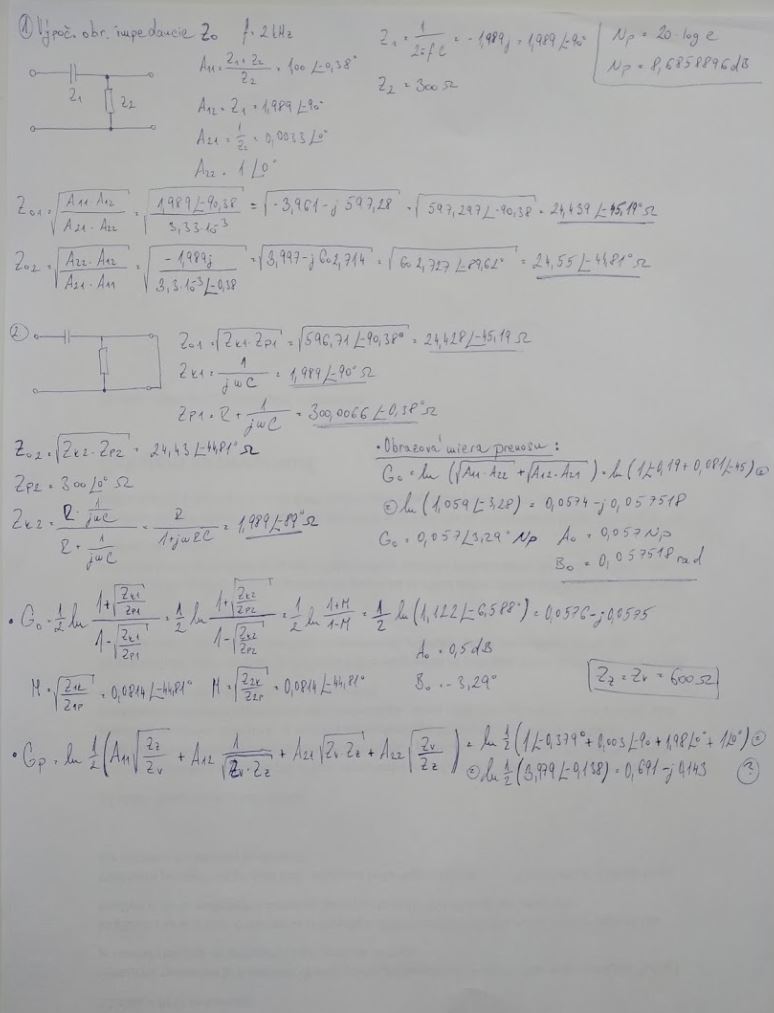 ① Výpoč. obr. impedancie Z₀ f = 2 kHz
Z₁ Z₂
A₁₁ = (Z₁ + Z₂)/Z₂ = 1,00 ∠-0,38°
A₁₂ = Z₁ = 1,989 ∠-90
A₂₁ = 1/Z₂ = 0,0033 ∠0°
A₂₂ = 1 ∠0°
Z₁ = 1/(2πfC) = -1,989j = 1,989 ∠-90
Z₂ = 300 Ω
Np = 20 · log e
Np = 8,6858896 dB
Z₀₁ = √((A₁₁ · A₁₂)/(A₂₁ · A₂₂)) = √((1,989 ∠-90,38)/(3,33·10⁻³)) = √(-3,961 - j 597,28) = √(597,297 ∠-90,38) = 24,439 ∠-45,19° Ω
Z₀₂ = √((A₂₂ · A₁₂)/(A₂₁ · A₁₁)) = √((-1,989j)/(3,3·10⁻³ ∠-0,38)) = √(3,997 - j 602,714) = √(602,727 ∠-89,62°) = 24,55 ∠-44,81° Ω
②
Z₀₁ = √(Zk₁ · Zp₁) = √(596,71 ∠-90,38°) = 24,428 ∠-45,19 Ω
Zk₁ = 1/(jωC) = 1,989 ∠-90° Ω
Zp₁ = R + 1/(jωC) = 300,0066 ∠-0,38° Ω
Z₀₂ = √(Zk₂ · Zp₂) = 24,43 ∠-44,81° Ω
Zp₂ = 300 ∠0° Ω
Zk₂ = (R · 1/(jωC))/(R + 1/(jωC)) = R/(1+jωRC) = 1,989 ∠-89° Ω
• Obrazová miera prenosu:
G₀ = ln (√(A₁₁ · A₂₂) + √(A₁₂ · A₂₁)) = ln (1 ∠-0,19 + 0,081 ∠-45) ⊜
⊜ ln (1,059 ∠-3,28) = 0,0574 - j 0,057518
G₀ = 0,057 ∠3,29° Np A₀ = 0,057 Np
B₀ = 0,057518 rad
• G₀ = 1/2 ln (1+√(Zk₁/Zp₁))/(1-√(Zk₁/Zp₁)) = 1/2 ln (1+√(Zk₂/Zp₂))/(1-√(Zk₂/Zp₂)) = 1/2 ln (1+M)/(1-M) = 1/2 ln (1,122 ∠-6,588°) = 0,0576 - j0,0575
A₀ = 0,5 dB
M = √(Z₁k/Z₁p) = 0,0814 ∠-44,81° M = √(Z₂k/Z₂p) = 0,0814 ∠-44,81° B₀ = -3,29° Zz = Zv = 600 Ω
• Gp = ln 1/2 (A₁₁ √(Zz/Zv) + A₁₂ 1/√(Zv · Zz) + A₂₁ √(Zv · Zz) + A₂₂ √(Zv/Zz)) = ln 1/2 (1 ∠-0,379° + 0,003 ∠-90 + 1,98 ∠0° + 1 ∠0°) ⊜
⊜ ln 1/2 (3,979 ∠-0,138) = 0,691 - j 0,143 ?